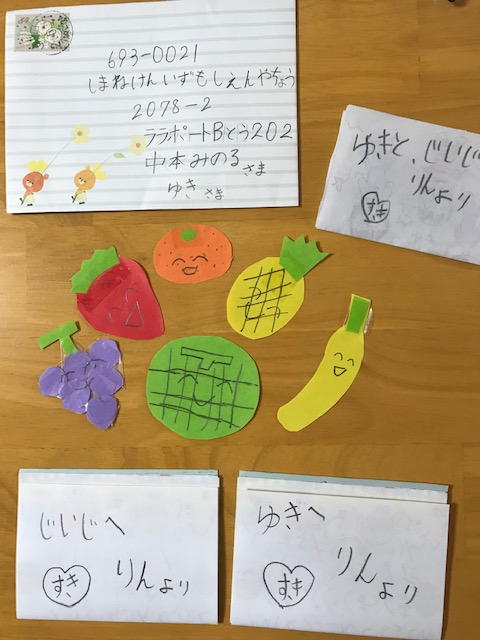 693-0021
しまねけんいずもしえんやちょう
2078-2
ララポートBとう202
中本みのるさま
ゆきさま
ゆきと、じいじへ
りんより
すき
じいじへ
すき りんより
ゆきへ
すき りんより